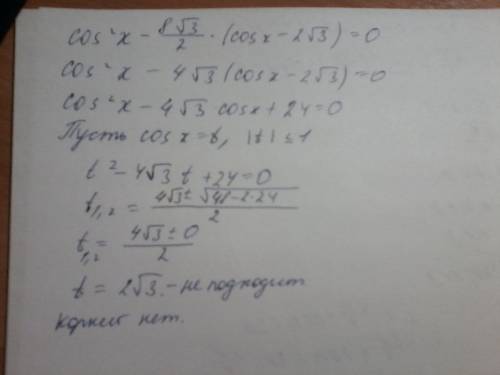 cos²x - 8√3/2 · (cosx - 2√3) = 0
cos²x - 4√3 (cosx - 2√3) = 0
cos²x - 4√3 cosx + 24 = 0
Пусть cosx = t, |t| ≤ 1
t² - 4√3 t + 24 = 0
t₁,₂ = (4√3 ± √(48 - 2·24))/2
t₁,₂ = (4√3 ± 0)/2
t = 2√3 - не подходит
корней нет.